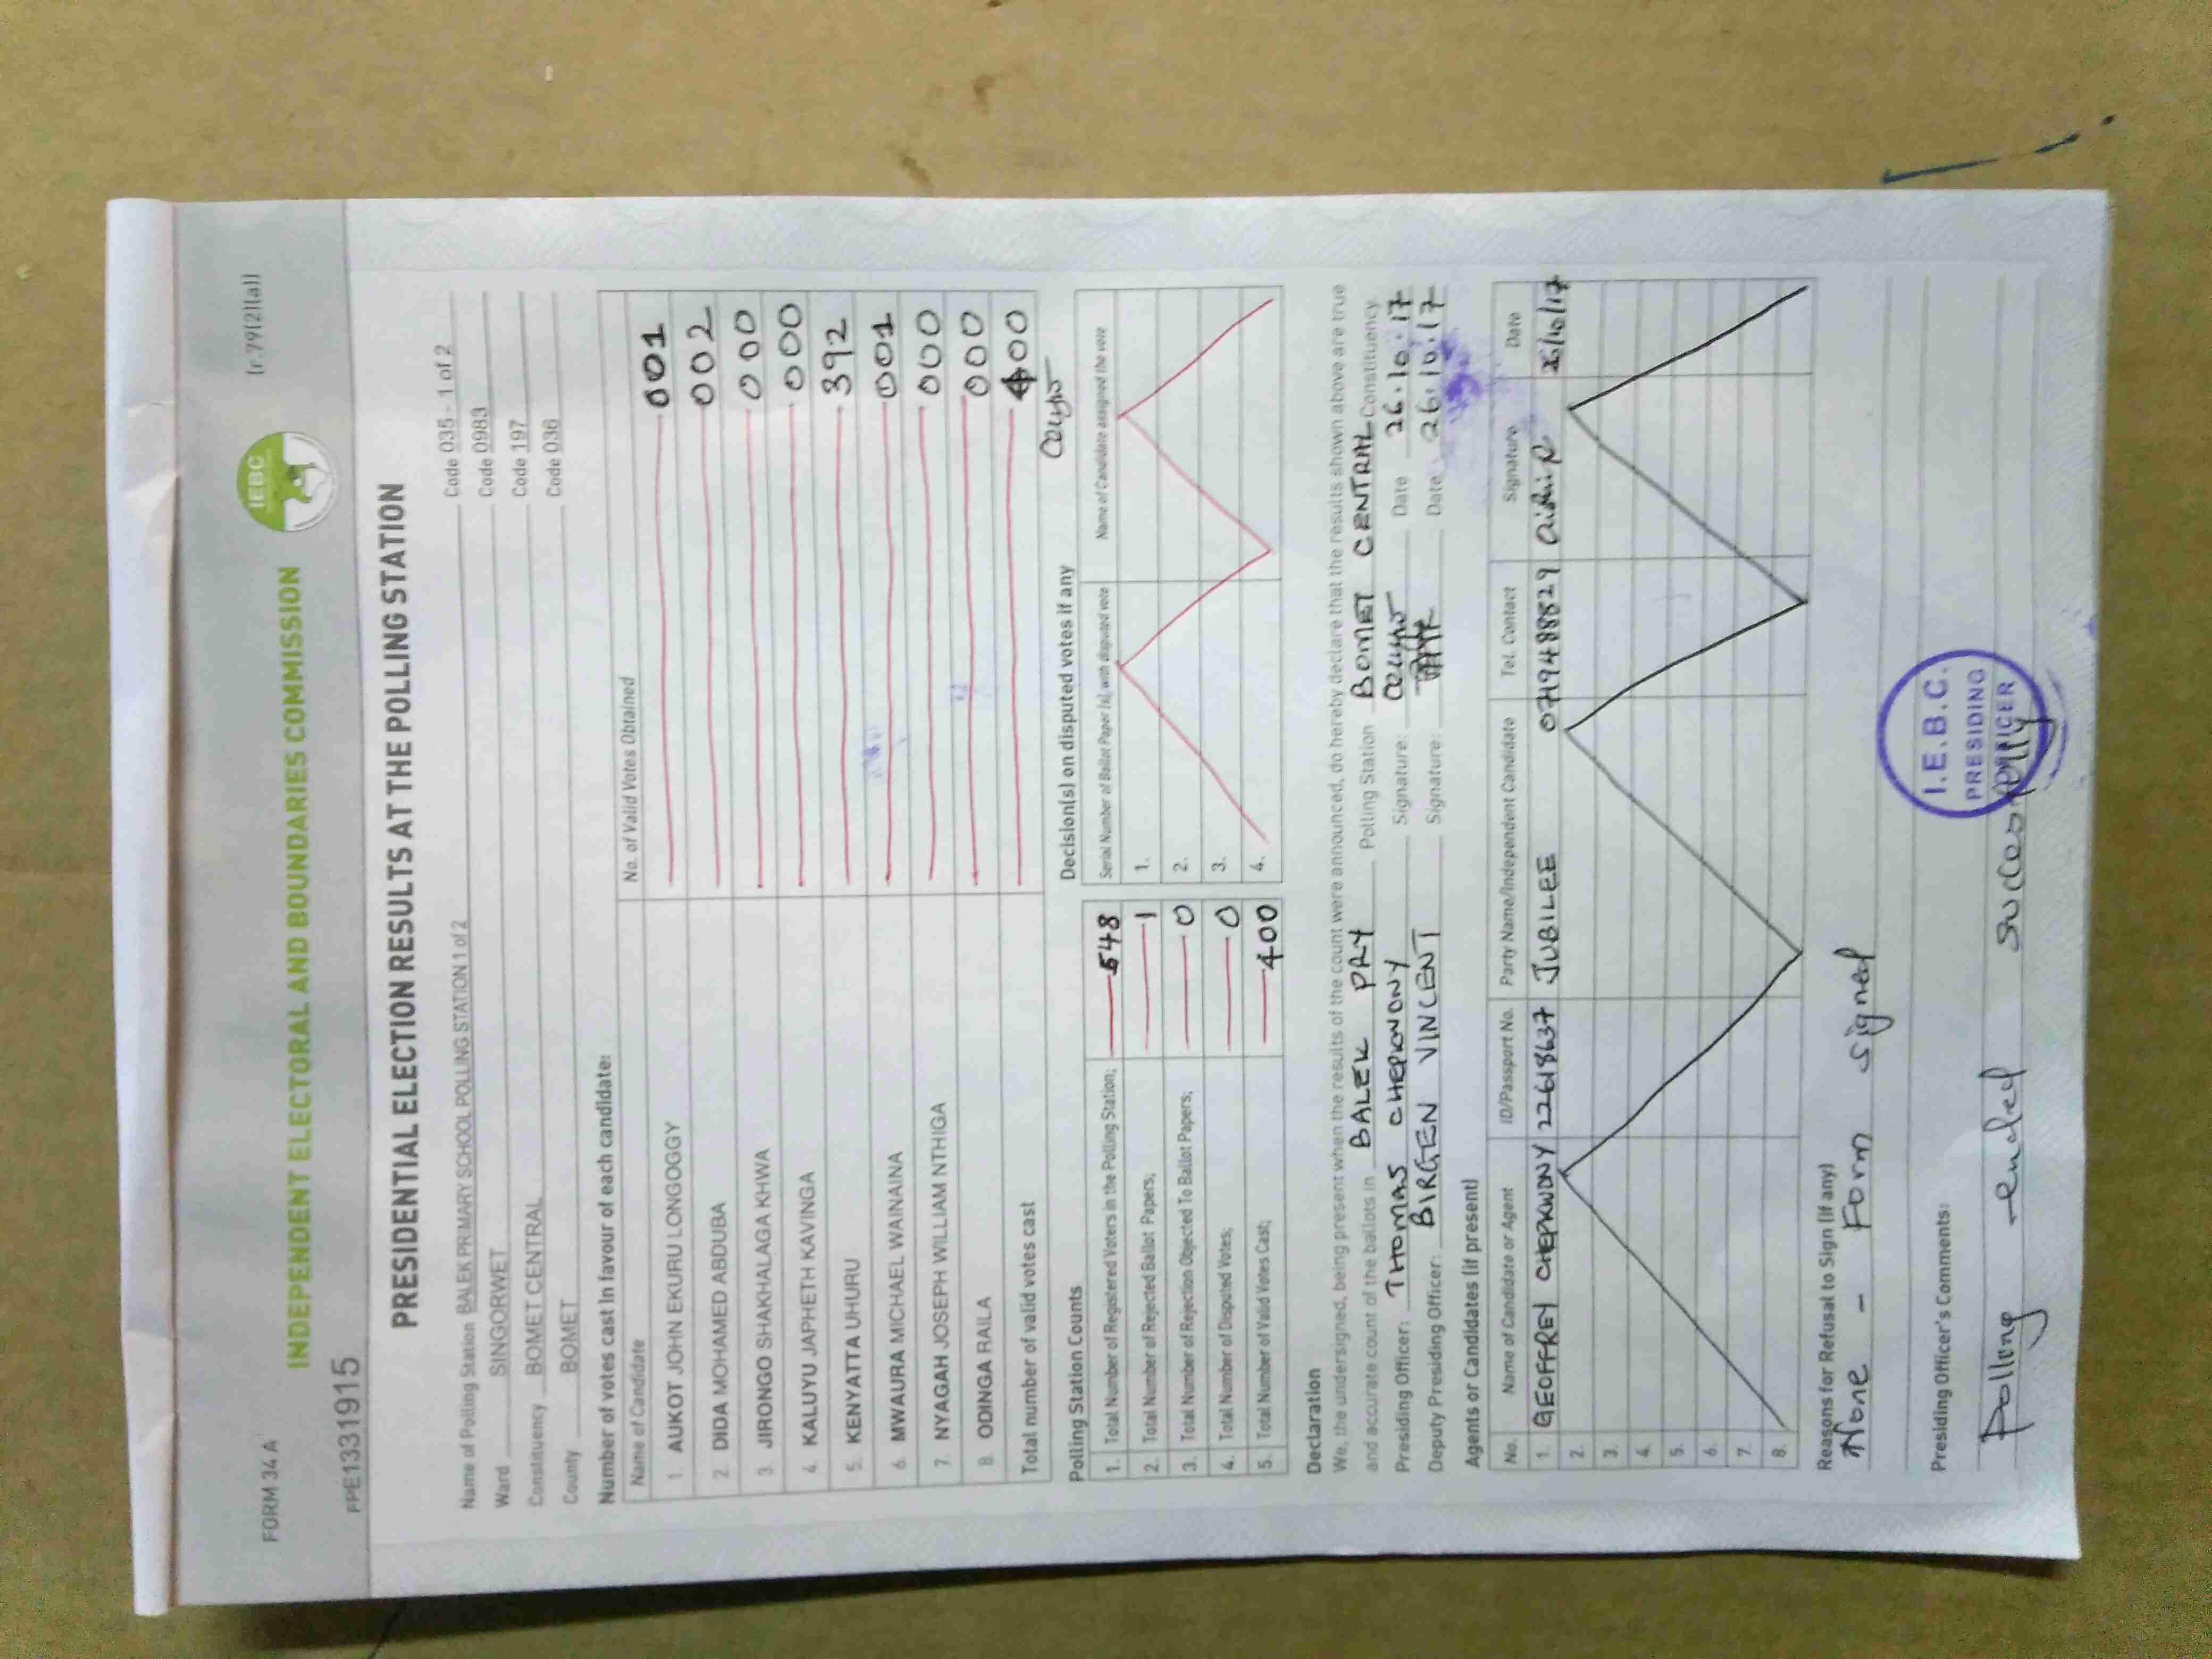 FORM 34 A
(r.79(2)(a))
INDEPENDENT ELECTORAL AND BOUNDARIES COMMISSION
IEBC
PPE1331915
PRESIDENTIAL ELECTION RESULTS AT THE POLLING STATION
Name of Polling Station BALEK PRIMARY SCHOOL POLLING STATION 1 of 2 Code 035 - 1 of 2
Ward SINGORWET Code 0983
Constituency BOMET CENTRAL Code 197
County BOMET Code 036
Number of votes cast in favour of each candidate:
Name of Candidate No. of Valid Votes Obtained
1. AUKOT JOHN EKURU LONGOGGY 001
2. DIDA MOHAMED ABDUBA 002
3. JIRONGO SHAKHALAGA KHWA 000
4. KALUYU JAPHETH KAVINGA 000
5. KENYATTA UHURU 392
6. MWAURA MICHAEL WAINAINA 001
7. NYAGAH JOSEPH WILLIAM NTHIGA 000
8. ODINGA RAILA 000
Total number of valid votes cast 400
Polling Station Counts
1. Total Number of Registered Voters in the Polling Station; 548
2. Total Number of Rejected Ballot Papers; 1
3. Total Number of Rejection Objected To Ballot Papers; 0
4. Total Number of Disputed Votes; 0
5. Total Number of Valid Votes Cast; 400
Decision(s) on disputed votes if any
Serial Number of Ballot Paper (s), with disputed vote Name of Candidate assigned the vote
1.
2.
3.
4.
Declaration
We, the undersigned, being present when the results of the count were announced, do hereby declare that the results shown above are true
and accurate count of the ballots in BALEK PRY Polling Station BOMET CENTRAL Constituency
Presiding Officer: THOMAS CHEPKWONY Signature: Date 26.10.17
Deputy Presiding Officer: BIRGEN VINCENT Signature: Date 26.10.17
Agents or Candidates (if present)
No. Name of Candidate or Agent ID/Passport No. Party Name/Independent Candidate Tel. Contact Signature Date
1. GEOFFREY CHEPKWONY 22618637 JUBILEE 0719488829 26/10/17
2.
3.
4.
5.
6.
7.
8.
Reasons for Refusal to Sign (if any)
None - Form signed
Presiding Officer's Comments:
Polling ended successfully
I.E.B.C.
PRESIDING
OFFICER